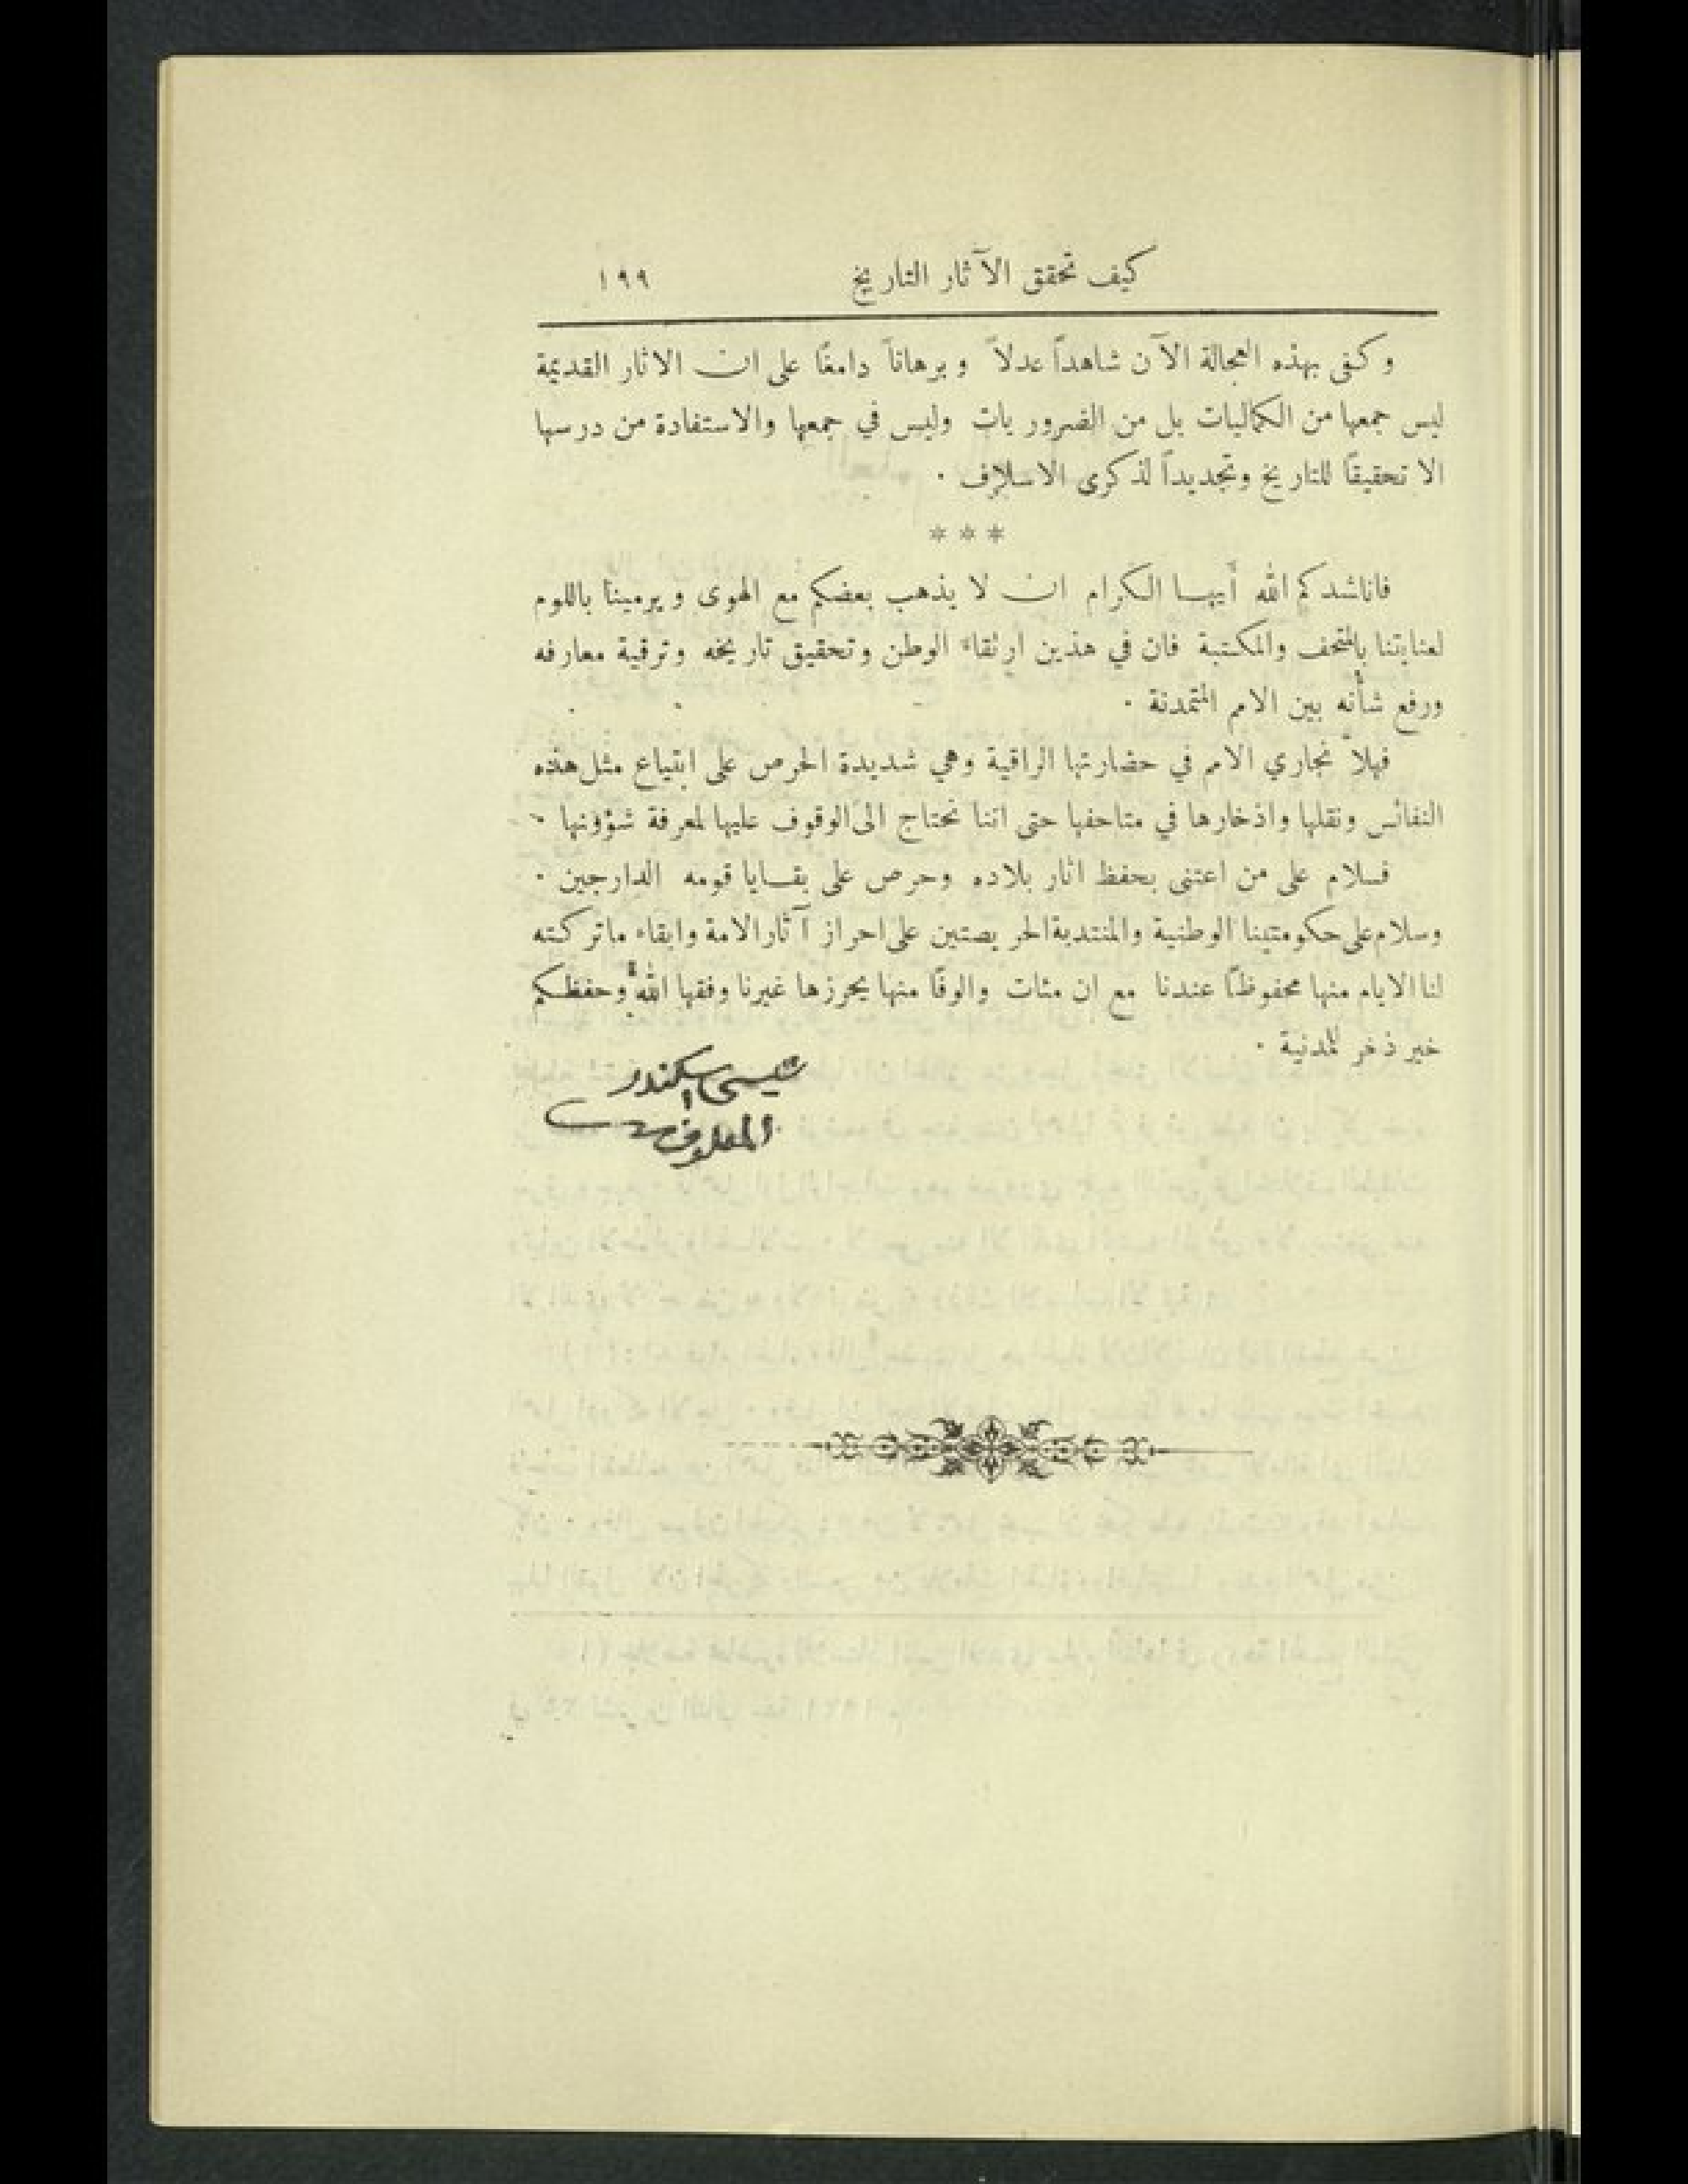 كيف تحقق الآثار التاريخ ١٩٩
وكفى بهذه العجالة الآن شاهداً عدلاً وبرهاناً دامغًا على ان الاثار القديمة
ليس جمعها من الكماليات بل من الضروريات وليس في جمعها والاستفادة من درسها
الا تحقيقًا للتاريخ وتجديداً لذكرى الاسلاف ٠
* * *
فاناشدكم الله أيها الكرام ان لا يذهب بعضكم مع الهوى ويرمينا باللوم
لعنايتنا بالمتحف والمكتبة فان في هذين ارتقاء الوطن وتحقيق تاريخه وترقية معارفه
ورفع شأنه بين الامم المتمدنة ٠
فهلاّ نجاري الامم في حضارتها الراقية وهي شديدة الحرص على ابتياع مثل هذه
النفائس ونقلها واذخارها في متاحفها حتى اننا نحتاج الى الوقوف عليها لمعرفة شؤونها ٠
فسلام على من اعتنى بحفظ اثار بلاده وحرص على بقايا قومه الدارجين ٠
وسلام على حكومتينا الوطنية والمنتدبة الحريصتين على احراز آثار الامة وابقاء ماتركته
لنا الايام منها محفوظًا عندنا مع ان مئات والوفًا منها يحرزها غيرنا وفقها الله وحفظكم
خير ذخر للمدنية ٠
عيسى اسكندر
المعلوف